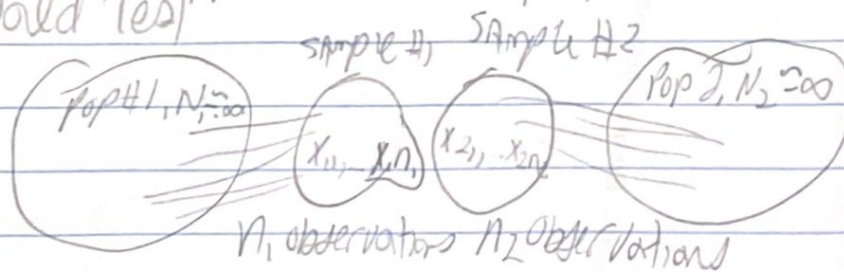 Test
SAmple #1 SAmple #2
Pop #1, N₁≈∞
Pop 2, N₂≈∞
X₁₁,...X₁n₁
X₂₁,...X₂n₂
n₁ observations n₂ observations